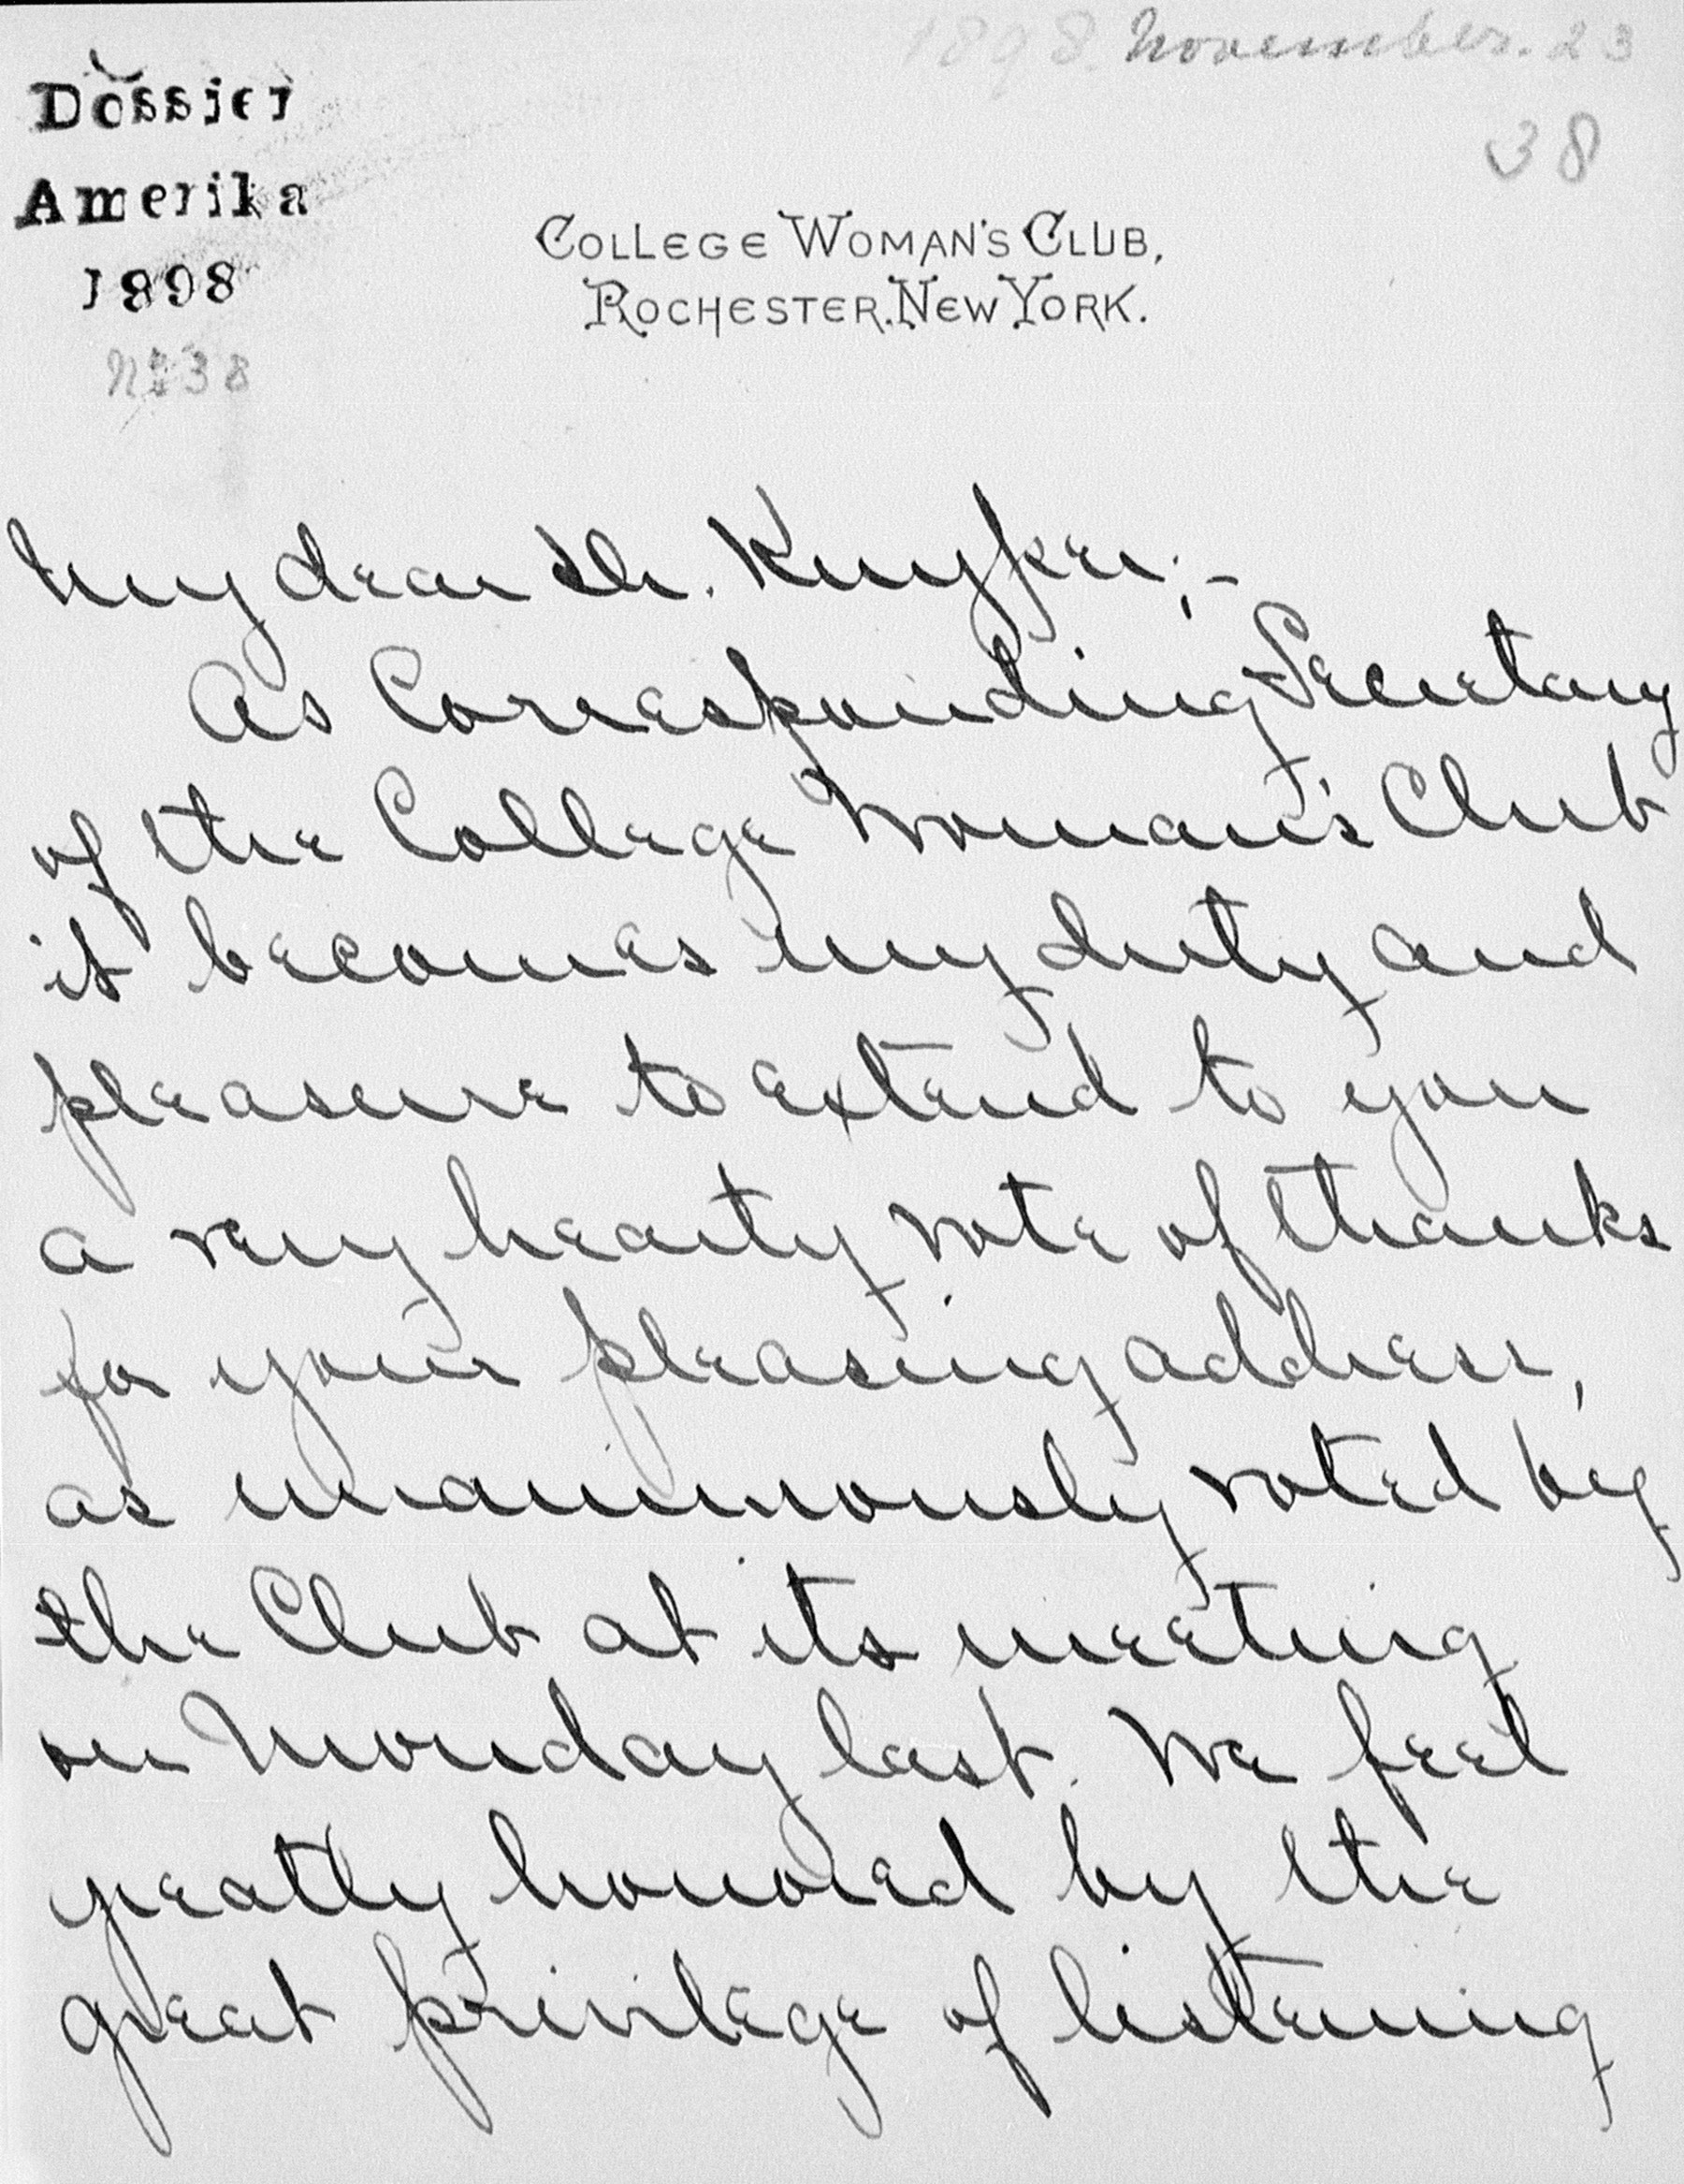 1898. November. 23
38
Dossier
Amerika
1898
No 38
COLLEGE WOMAN'S CLUB,
ROCHESTER. NEW YORK.
My dear Dr. Kuyper;-
As Corresponding Secretary
of the College Woman's Club
it becomes my duty and
pleasure to extend to you
a very hearty vote of thanks
for your pleasing address,
as unanimously voted by
the Club at its meeting
on Monday last. We feel
greatly honored by the
great privilege of listening